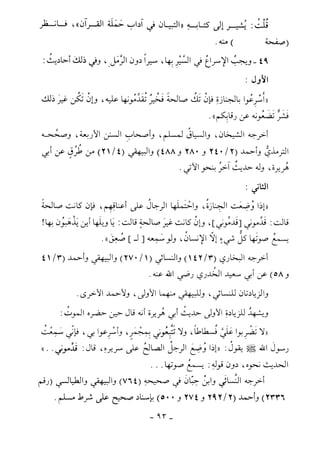 قُلْتُ: يُشيـــر إلى كتــابــهِ «التبيــان في آداب حَمَلَة القــرآن»، فــانــظر
(صفحة ) منه.
٤٩ ـ ويجبُ الإسراعُ في السَّيْرِ بها، سيراً دون الرَّمَلِ، وفي ذلك أحاديثُ:
الأول :
«أَسْرِعُوا بالجنازةِ فإنْ تَكُ صالحةً فخيْرٌ تُقَدِّمُونها عليه، وإنْ تَكُن غيرَ ذلك
فشَرٌّ تَضَعُونه عن رقابِكم».
أخرجه الشيخان، والسياقُ لمسلم، وأصحاب السنن الأربعة، وصحّحـه
الترمذيُّ وأحمد (٢٤٠/٢ و ٢٨٠ و ٤٨٨) والبيهقي (٢١/٤) من طُرُقٍ عن أبي
هُريرة، وله حديثٌ آخرُ بنحو الآتي.
الثاني :
«إذا وُضِعَت الجِنازَةُ، واحْتَمَلَها الرجالُ على أعناقِهم، فإن كانت صالحةً
قالت: قَدِّموني [قَدِّموني]، وإنْ كانت غيرَ صالحةٍ قالت: يَا ويلَها أين يَذْهَبُوْن بها؟
يسمعُ صوتَها كلُّ شيءٍ إلّا الإنسانُ، ولو سَمِعه [لـ] صُعِق».
أخرجه البخاري (١٤٢/٣) والنسائي (٢٧٠/١) والبيهقي وأحمد (٤١/٣
و ٥٨) عن أبي سعيد الخُدري رضي الله عنه.
والزيادتان للنسائي، وللبيهقي منهما الأولى، ولأحمد الأخرى.
ويشهدُ للزيادة الأولى حديثُ أبي هُريرة أنه قال حين حضره الموتُ:
«لا تَضْرِبوا عَلَيَّ فُسطاطاً، ولا تَتْبَعُوني بِمِجْمَرٍ، وأَسْرِعوا بي، فإنّي سَمِعْتُ
رسولَ الله ﷺ يقولُ: «إذا وُضِعَ الرجلُ الصالحُ على سريرِهِ، قال: قَدِّموني.. »
الحديث نحوه، دون قولِهِ: يسمعُ صوتها. . .
أخرجه النَّسائي وابنُ حِبّانَ في صحيحهِ (٧٦٤) والبيهقي والطيالسي (رقم
٢٣٣٦) وأحمد (٢٩٢/٢ و ٢٧٤ و ٥٠٠) بإسناد صحيح على شرط مسلم.
ـ ٩٣ ـ